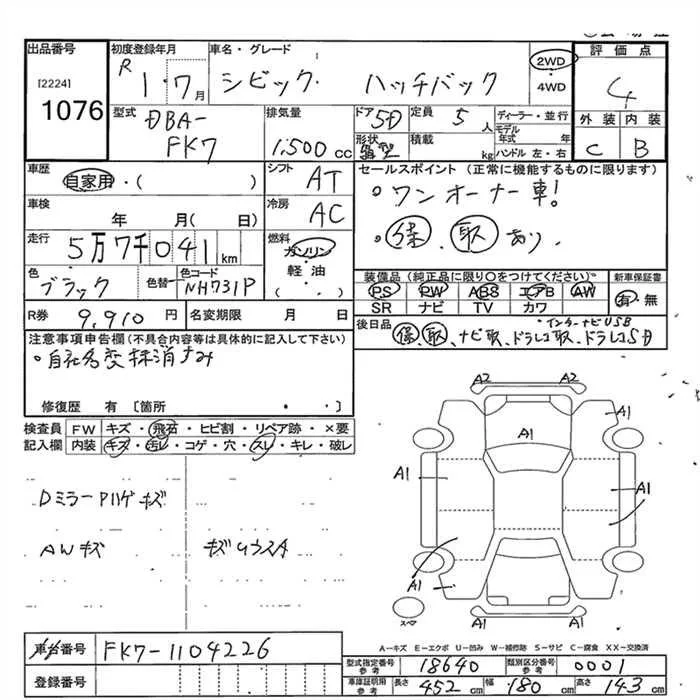 出品番号 初度登録年月 車名・グレード 2WD ・ 4WD 評価点
[2224] R 1・7月 シビック ハッチバック 4
1076 外装 内装
型式 DBA-FK7 排気量 1,500 cc ドア 5D 形状 定員 5人 積載 kg ディーラー・並行 モデル年式 年 ハンドル 左・右 C B
車歴 自家用・( ) シフト AT セールスポイント (正常に機能するものに限ります)
・ワンオーナー車!
車検 年 月( 日) 冷房 AC
・保 取 あり
走行 5万7千041km 燃料 ガソリン 軽油 ( ・ )
色 ブラック 色替 色コード NH731P
装備品 (純正品に限り○をつけてください) 新車保証書
PS PW ABS エアB AW 有・無
SR ナビ TV カワ
R券 9,910円 名変期限 月 日
後日品 保、取、ナビ取、ドラレコ取、ドラレコSD
インターナビUSB
注意事項申告欄(不具合内容等は具体的に記入して下さい)
・自社名変抹消すみ
修復歴 有〔箇所 ・ ・ 〕
検査員 FW キズ・飛石・ヒビ割・リペア跡・×要
記入欄 内装 キズ・汚レ・コゲ・穴・スレ・キレ・破レ
A2 A2
A1
A1
A1 A1
DミラーPハゲキズ
AWキズ
A1 A1
スペア
A-キズ E-エクボ U-凹み W-補修跡 S-サビ C-腐食 XX-交換済
車台番号 FK7-1104226
登録番号
型式指定番号 参考 18640 類別区分番号 参考 0001
車庫証明用 参考 長さ 452cm 幅 180cm 高さ 143cm